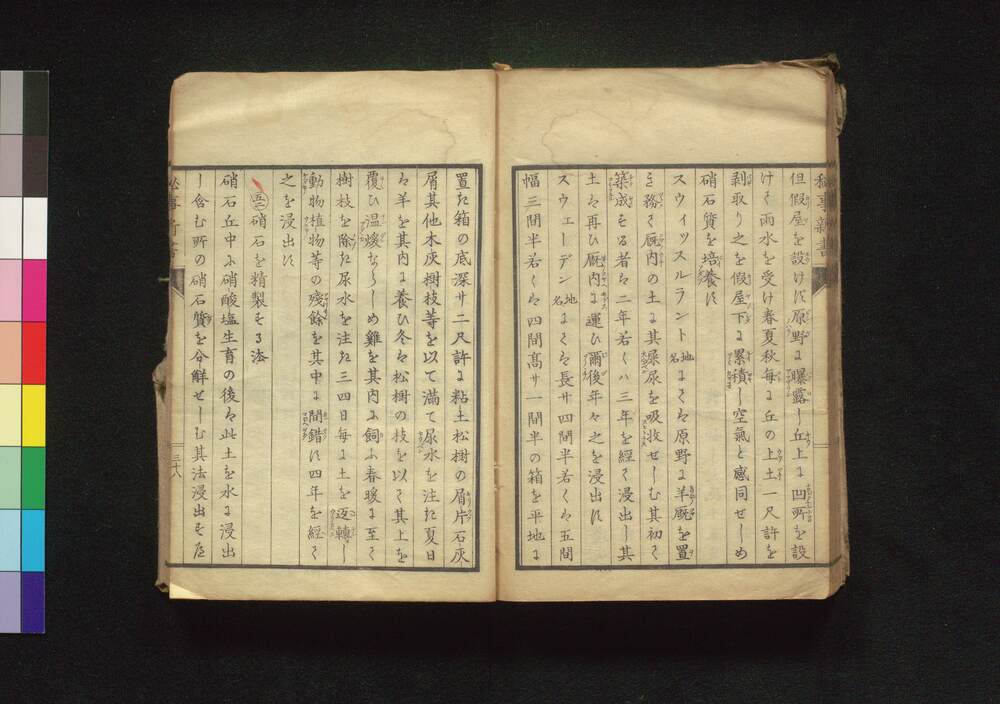 但假屋を設けず原野に曝露し丘上に凹所を設
けて雨水を受け春夏秋毎に丘の上土一尺許を
剥取り之を假屋下に累積し空氣と感同せしめ
硝石質を培養す
スウィッスルラント地名にては原野に羊廐を置
き務て廐内の土に其屎尿を吸收せしむ其初て
築成せる者は二年若くハ三年を經て浸出し其
土を再ひ廐内に運ひ爾後年々之を浸出す
スウェーデン地名にては長サ四間半若くは五間
幅三間半若くは四間髙サ一間半の箱を平地に
置き箱の底深サ二尺許に粘土松樹の屑片石灰
屑其他木灰樹枝等を以て満て尿水を注き夏日
は羊を其内に養ひ冬は松樹の枝を以て其上を
覆ひ温煖ならしめ雞を其内に飼ふ春暖に至て
樹枝を除き尿水を注き三四日毎に土を返轉し
動物植物等の殘餘を其中に間錯す四年を經て
之を浸出す
硝石を精製する法
硝石丘中に硝酸塩生育の後は此土を水に浸出
し含む所の硝石質を分解せしむ其法浸出する
三十八